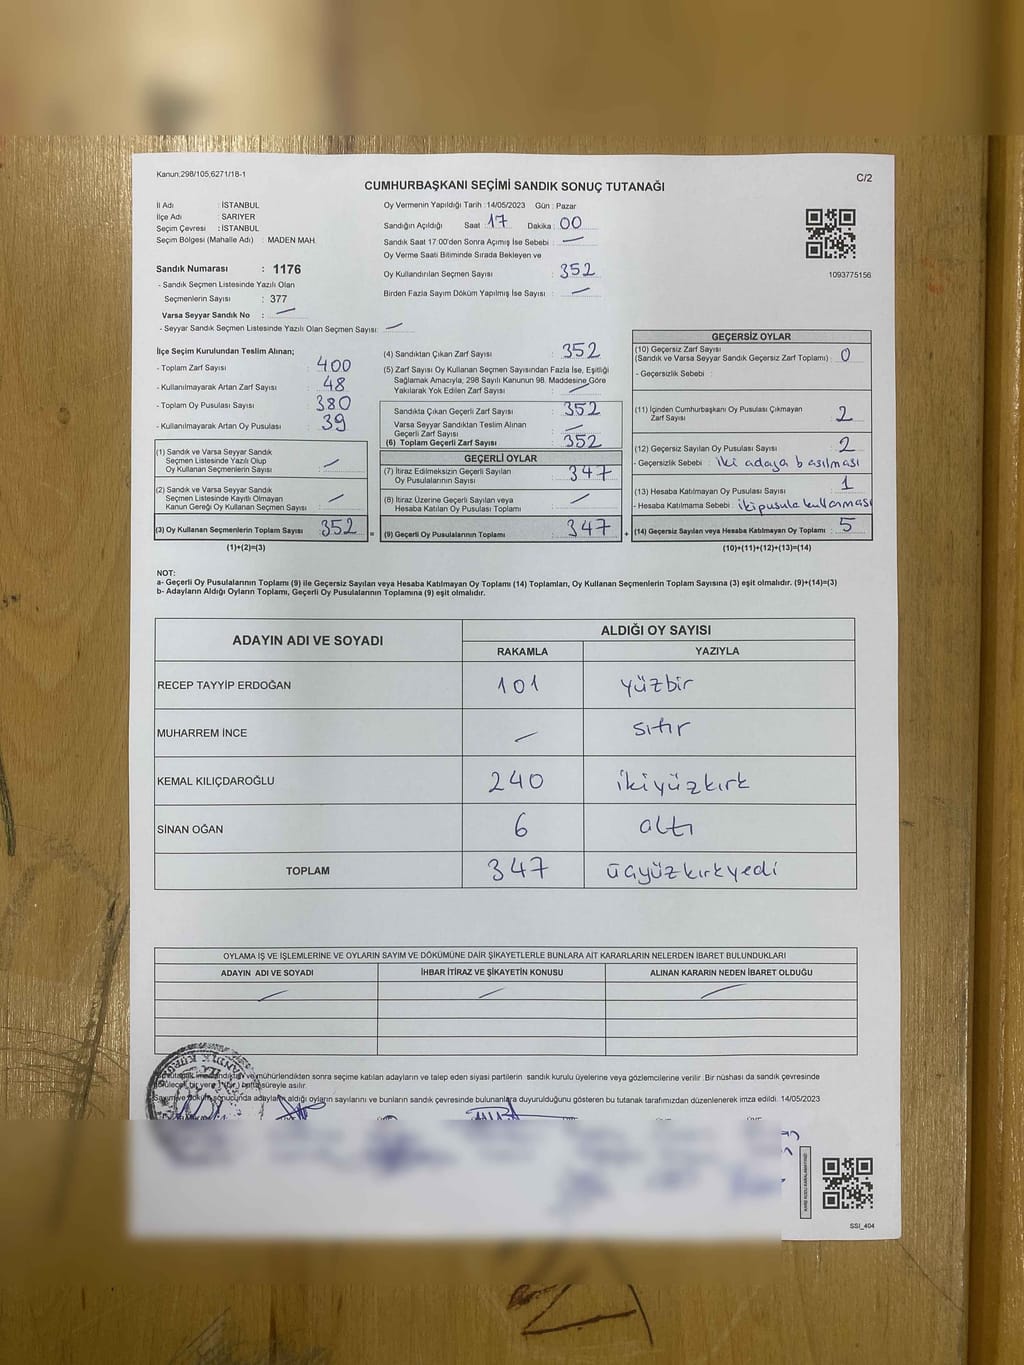 Kanun:298/105,6271/18-1
C/2
CUMHURBAŞKANI SEÇİMİ SANDIK SONUÇ TUTANAĞI
İl Adı : İSTANBUL
İlçe Adı : SARIYER
Seçim Çevresi : İSTANBUL
Seçim Bölgesi (Mahalle Adı) : MADEN MAH.
Sandık Numarası : 1176
- Sandık Seçmen Listesinde Yazılı Olan
Seçmenlerin Sayısı : 377
Varsa Seyyar Sandık No : —
- Seyyar Sandık Seçmen Listesinde Yazılı Olan Seçmen Sayısı: —
Oy Vermenin Yapıldığı Tarih : 14/05/2023 Gün : Pazar
Sandığın Açıldığı Saat : 17 Dakika : 00
Sandık Saat 17:00'den Sonra Açımış İse Sebebi : —
Oy Verme Saati Bitiminde Sırada Bekleyen ve
Oy Kullandırılan Seçmen Sayısı : 352
Birden Fazla Sayım Döküm Yapılmış İse Sayısı : —
1093775156
İlçe Seçim Kurulundan Teslim Alınan;
- Toplam Zarf Sayısı : 400
- Kullanılmayarak Artan Zarf Sayısı : 48
- Toplam Oy Pusulası Sayısı : 380
- Kullanılmayarak Artan Oy Pusulası : 39
(1) Sandık ve Varsa Seyyar Sandık
Seçmen Listesinde Yazılı Olup
Oy Kullanan Seçmenlerin Sayısı : —
(2) Sandık ve Varsa Seyyar Sandık
Seçmen Listesinde Kayıtlı Olmayan
Kanun Gereği Oy Kullanan Seçmen Sayısı : —
(3) Oy Kullanan Seçmenlerin Toplam Sayısı : 352
(1)+(2)=(3)
=
(4) Sandıktan Çıkan Zarf Sayısı : 352
(5) Zarf Sayısı Oy Kullanan Seçmen Sayısından Fazla İse, Eşitliği
Sağlamak Amacıyla, 298 Sayılı Kanunun 98. Maddesine Göre
Yakılarak Yok Edilen Zarf Sayısı : —
Sandıkta Çıkan Geçerli Zarf Sayısı : 352
Varsa Seyyar Sandıktan Teslim Alınan
Geçerli Zarf Sayısı : —
(6) Toplam Geçerli Zarf Sayısı : 352
GEÇERLİ OYLAR
(7) İtiraz Edilmeksizin Geçerli Sayılan
Oy Pusulalarının Sayısı : 347
(8) İtiraz Üzerine Geçerli Sayılan veya
Hesaba Katılan Oy Pusulası Toplamı : —
(9) Geçerli Oy Pusulalarının Toplamı : 347
+
GEÇERSİZ OYLAR
(10) Geçersiz Zarf Sayısı
(Sandık ve Varsa Seyyar Sandık Geçersiz Zarf Toplamı) : 0
- Geçersizlik Sebebi :
(11) İçinden Cumhurbaşkanı Oy Pusulası Çıkmayan
Zarf Sayısı : 2
(12) Geçersiz Sayılan Oy Pusulası Sayısı : 2
- Geçersizlik Sebebi : iki adaya basılması
(13) Hesaba Katılmayan Oy Pusulası Sayısı : 1
- Hesaba Katılmama Sebebi : iki pusula kullanması
(14) Geçersiz Sayılan veya Hesaba Katılmayan Oy Toplamı : 5
(10)+(11)+(12)+(13)=(14)
NOT:
a- Geçerli Oy Pusulalarının Toplamı (9) ile Geçersiz Sayılan veya Hesaba Katılmayan Oy Toplamı (14) Toplamları, Oy Kullanan Seçmenlerin Toplam Sayısına (3) eşit olmalıdır. (9)+(14)=(3)
b- Adayların Aldığı Oyların Toplamı, Geçerli Oy Pusulalarının Toplamına (9) eşit olmalıdır.
ADAYIN ADI VE SOYADI ALDIĞI OY SAYISI
RAKAMLA YAZIYLA
RECEP TAYYİP ERDOĞAN 101 yüzbir
MUHARREM İNCE — sıfır
KEMAL KILIÇDAROĞLU 240 ikiyüzkırk
SİNAN OĞAN 6 altı
TOPLAM 347 üçyüzkırkyedi
OYLAMA İŞ VE İŞLEMLERİNE VE OYLARIN SAYIM VE DÖKÜMÜNE DAİR ŞİKAYETLERLE BUNLARA AİT KARARLARIN NELERDEN İBARET BULUNDUKLARI
ADAYIN ADI VE SOYADI İHBAR İTİRAZ VE ŞİKAYETİN KONUSU ALINAN KARARIN NEDEN İBARET OLDUĞU
— — —
mühürlendikten sonra seçime katılan adayların ve talep eden siyasi partilerin sandık kurulu üyelerine veya gözlemcilerine verilir. Bir nüshası da sandık çevresinde
bir yere süreyle asılır.
sonucunda adayların aldığı oyların sayılarını ve bunların sandık çevresinde bulunanlara duyurulduğunu gösteren bu tutanak tarafımızdan düzenlenerek imza edildi. 14/05/2023
SSI_404